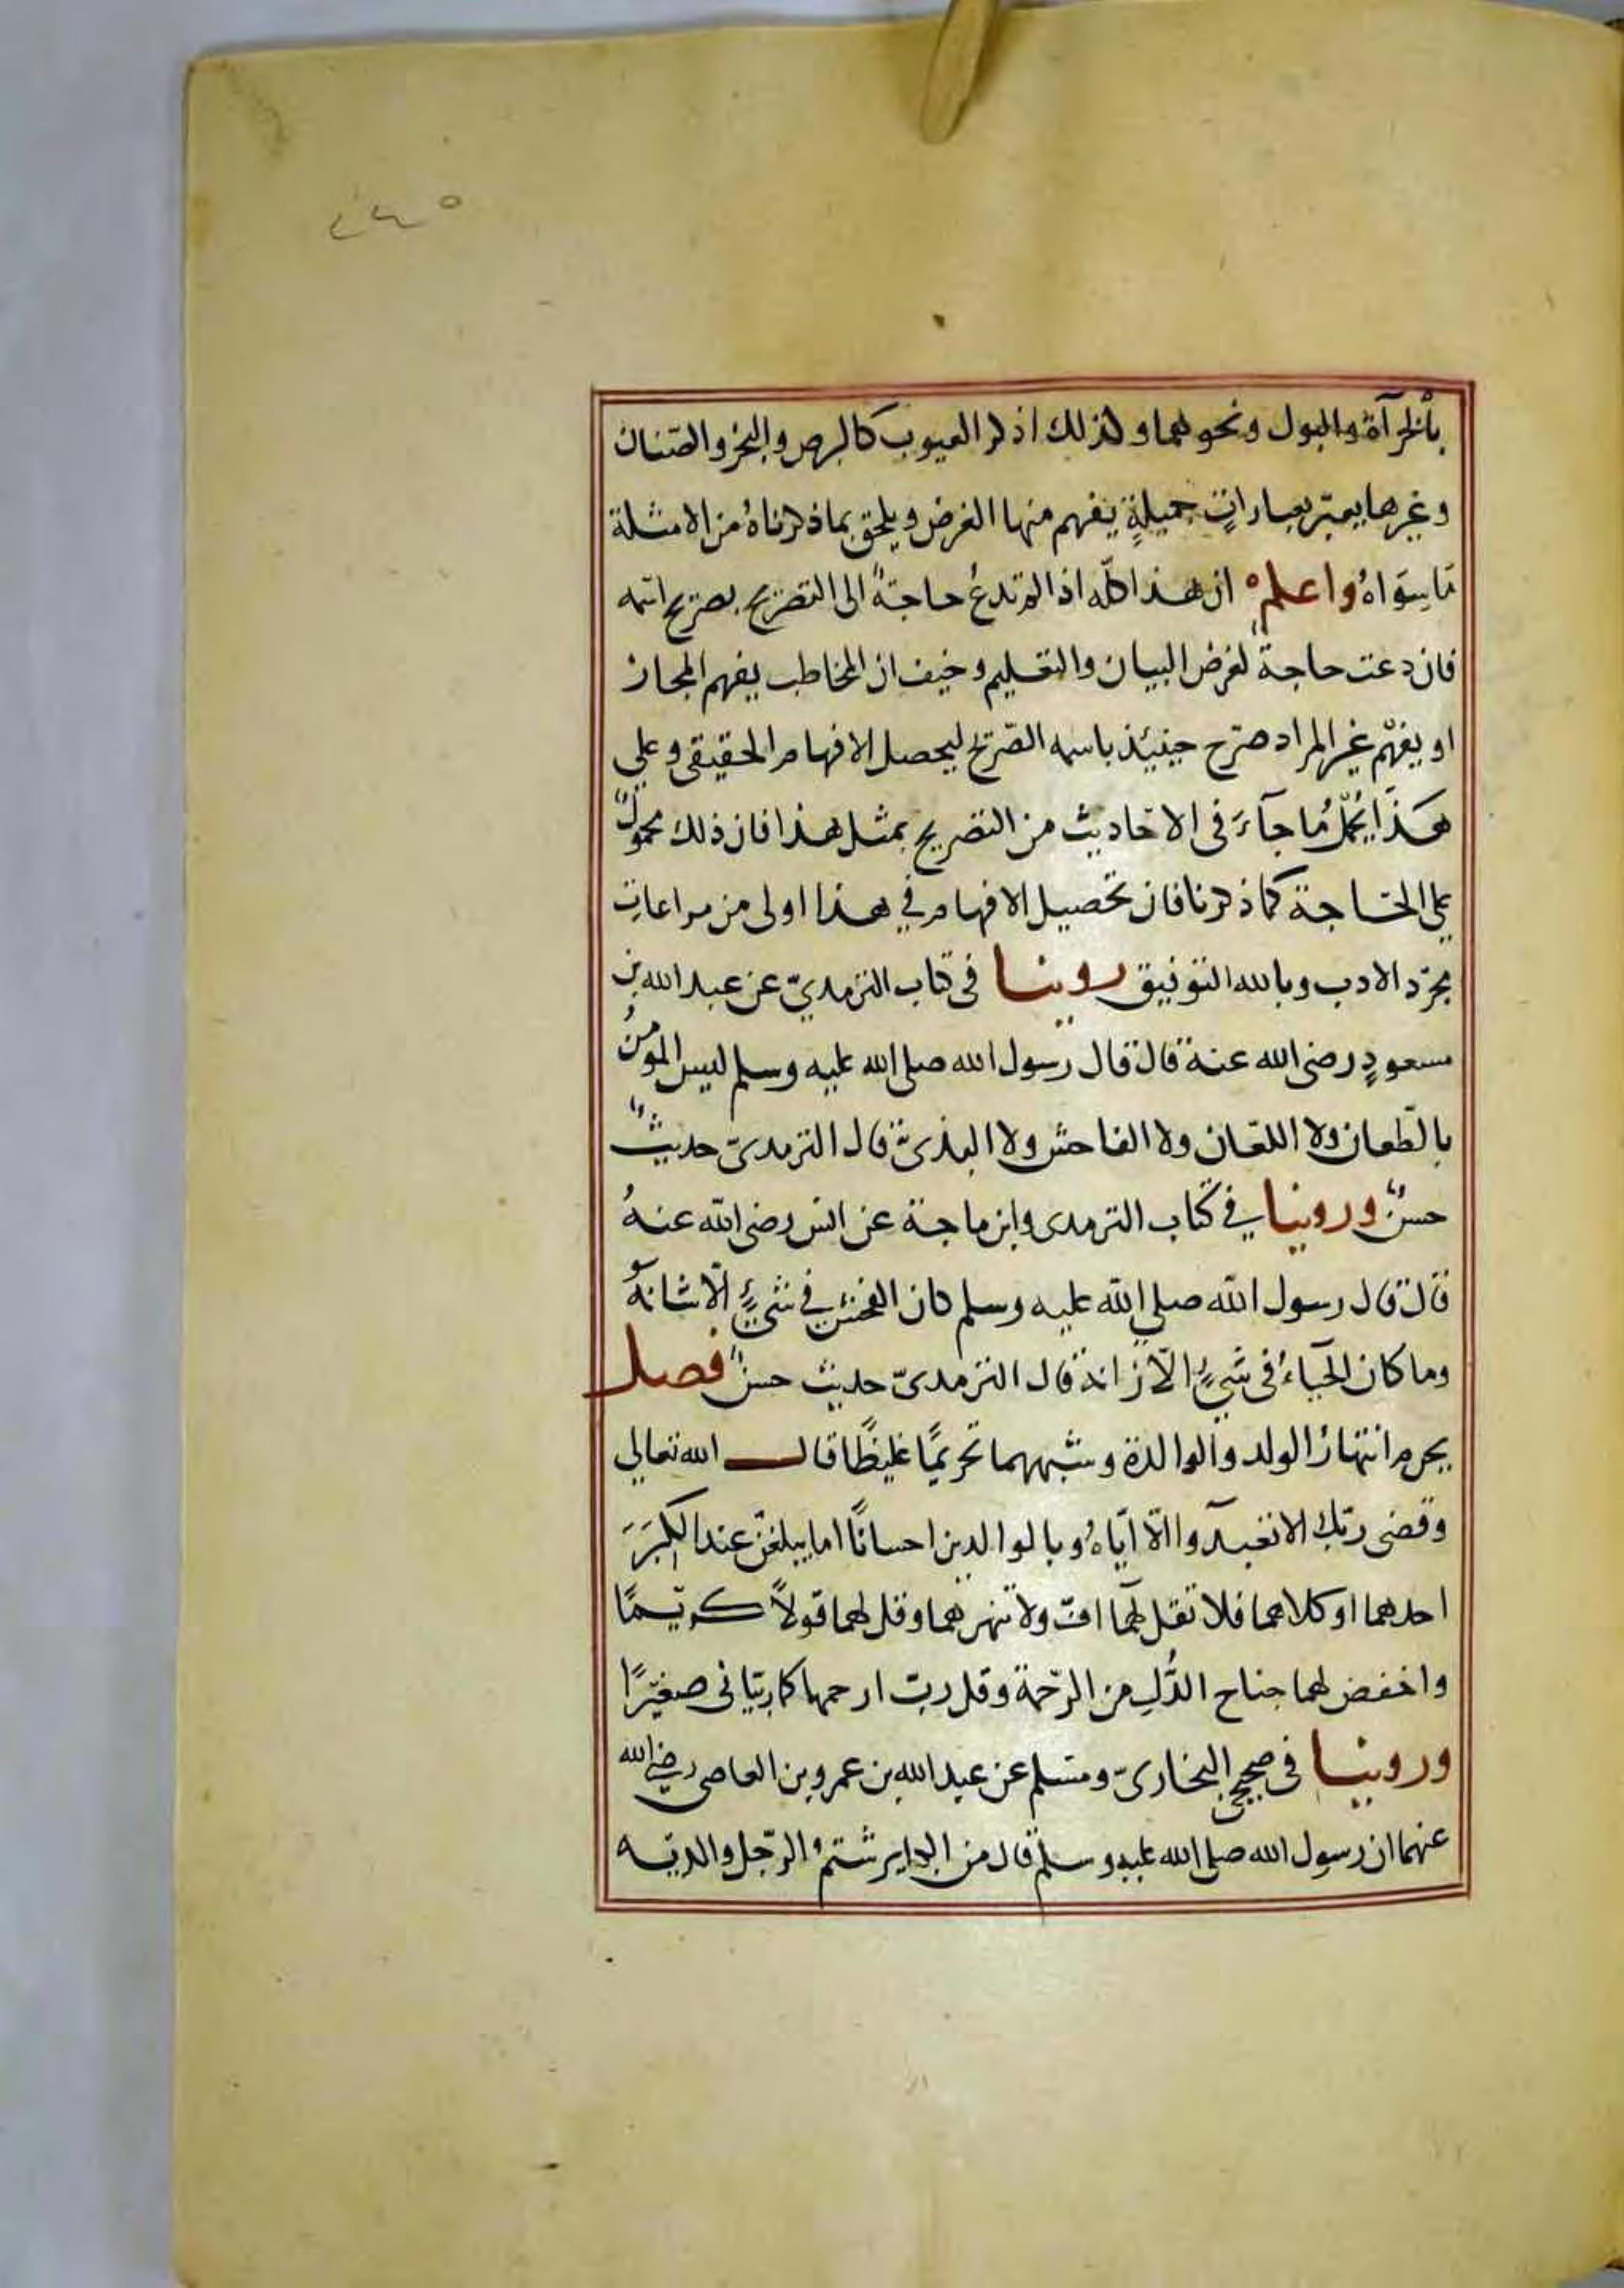 ٢٤٥
بالخرآة والبول ونحوهما وكذلك اذكر العيوب كالبرص والبخر والصّنان
وغيرها يعبّر بعباراتٍ جميلةٍ يفهم منها الغرض ويلحق بما ذكرناهُ من الامثلة
مَا سِوَاهُ واعلم ان هذا كلّه اذا لم تدعُ حاجةٌ الى التصريح بصريح اسمه
فان دعت حاجة لغرض البيان والتعليم وخيف ان المخاطب يفهم المجاز
او يفهم غير المراد صرّح حينئذ باسمه الصّريح ليحصل الافهام الحقيقى وعلى
هَذَا يُحْمل مُا جآءَ فى الاحاديث من التصريح بمثل هذا فان ذلك محمولٌ
على الحاجة كما ذكرنا فان تحصيل الافهام في هذا اولى من مراعات
مجرّد الادب وبالله التوفيق روينا فى كتاب الترمديّ عن عبد الله بن
مسعودٍ رضى الله عنه قال قال رسول الله صلى الله عليه وسلم ليس المومنُ
بالطّعان ولا اللعّان ولا الفاحش ولا البذىّ قال الترمدىّ حديثٌ
حسنٌ وروينا في كتاب الترمدى وابن ماجة عن انس رضى الله عنهُ
قال قال رسول الله صلى الله عليه وسلم كان الفحش في شىءٍ الّا شانهُ
وما كان الحياءُ فى شىءٍ الّا زانه قال الترمدىّ حديث حسنٌ فصل
يحرم انتهارُ الولد والوالدة وشبههما تحريمًا غليظًا قال الله تعالى
وقضى ربّك الا تعبدوا الّا ايّاهُ وبالوالدين احسانًا اما يبلغنّ عندك الكبَرَ
احدهما او كلاهما فلا تقل لهمآ افّ ولا تنهرهما وقل لهما قولاً كريمًا
واخفض لهما جناح الذُّلِ من الرّحمة وقل ربّ ارحمهما كما ربّيانى صغيرًا
وروينا فى صحيحى البخارىّ ومسلم عن عبد الله بن عمرو بن العاصى رضى الله
عنهما ان رسول الله صلى الله عليه وسلم قال من الكباير شتمُ الرّجل والديه